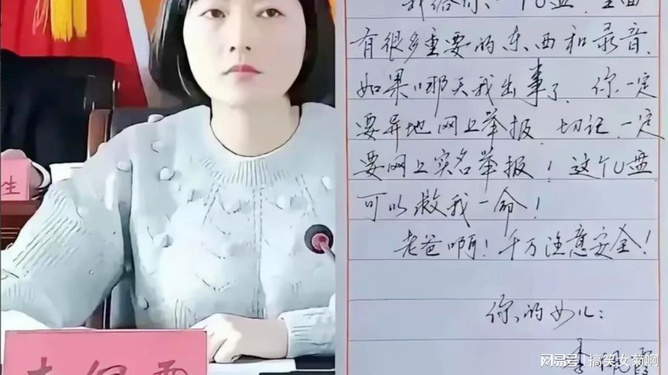 生
有很多重要的东西和录音,
如果哪天我出事了,你一定
要异地网上举报,切记,一定
要网上实名举报!这个U盘
可以救我一命!
老爸啊!千万注意安全!
你的女儿:
李
网易号 | 搞笑女菊啊